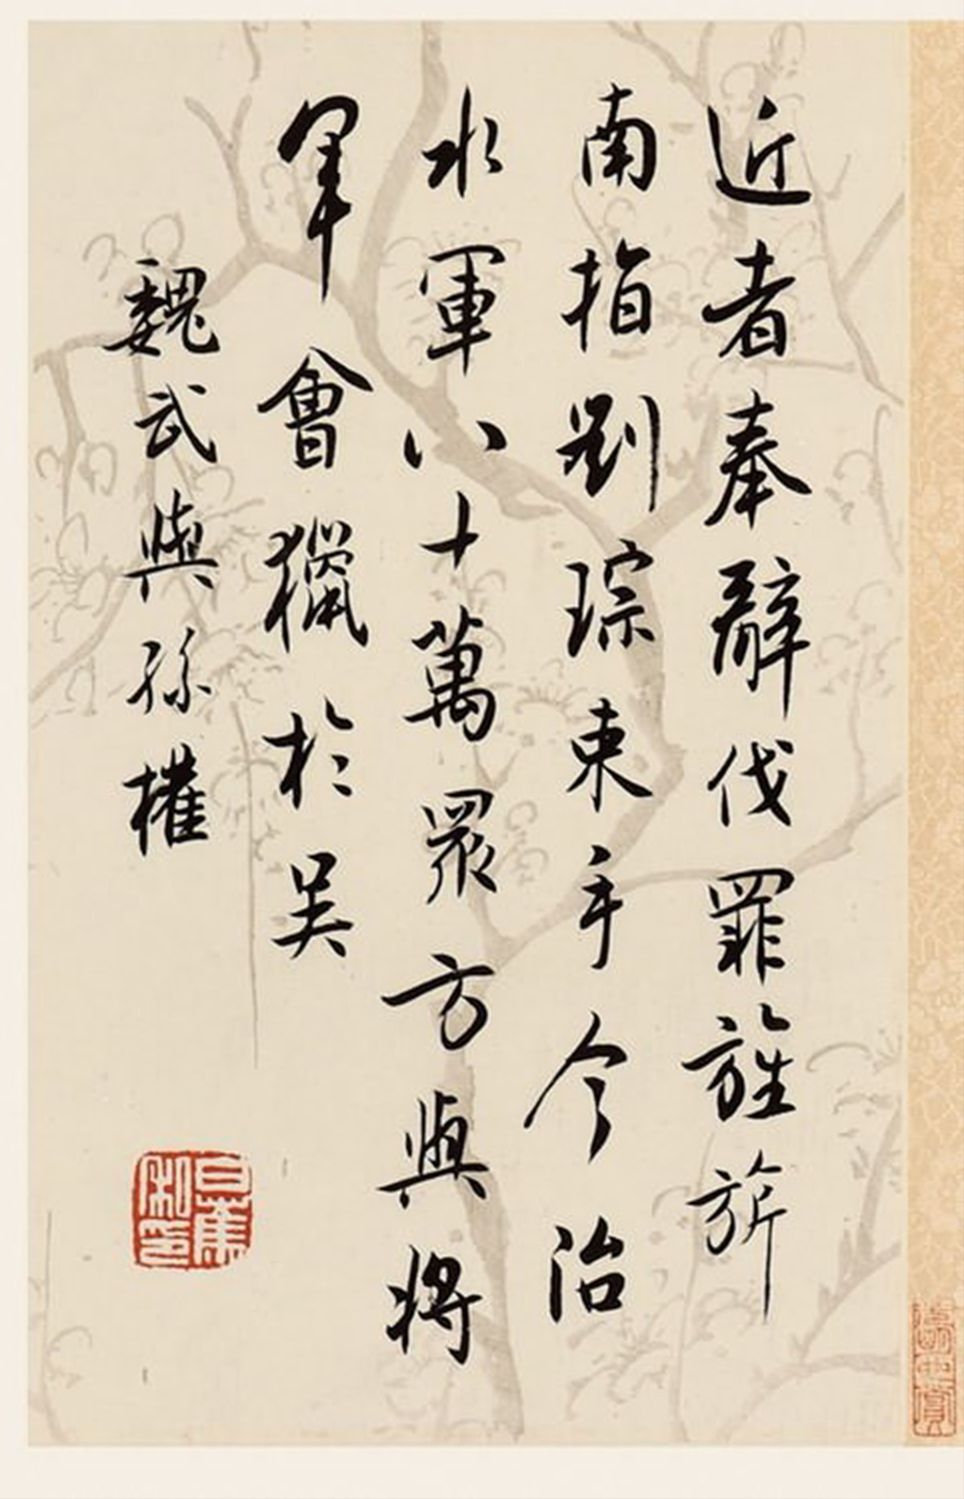 近者奉辭伐罪旌旂
南指劉琮束手今治
水軍八十萬眾方與將
軍會獵於吴
魏武與孫權
白蕉私印